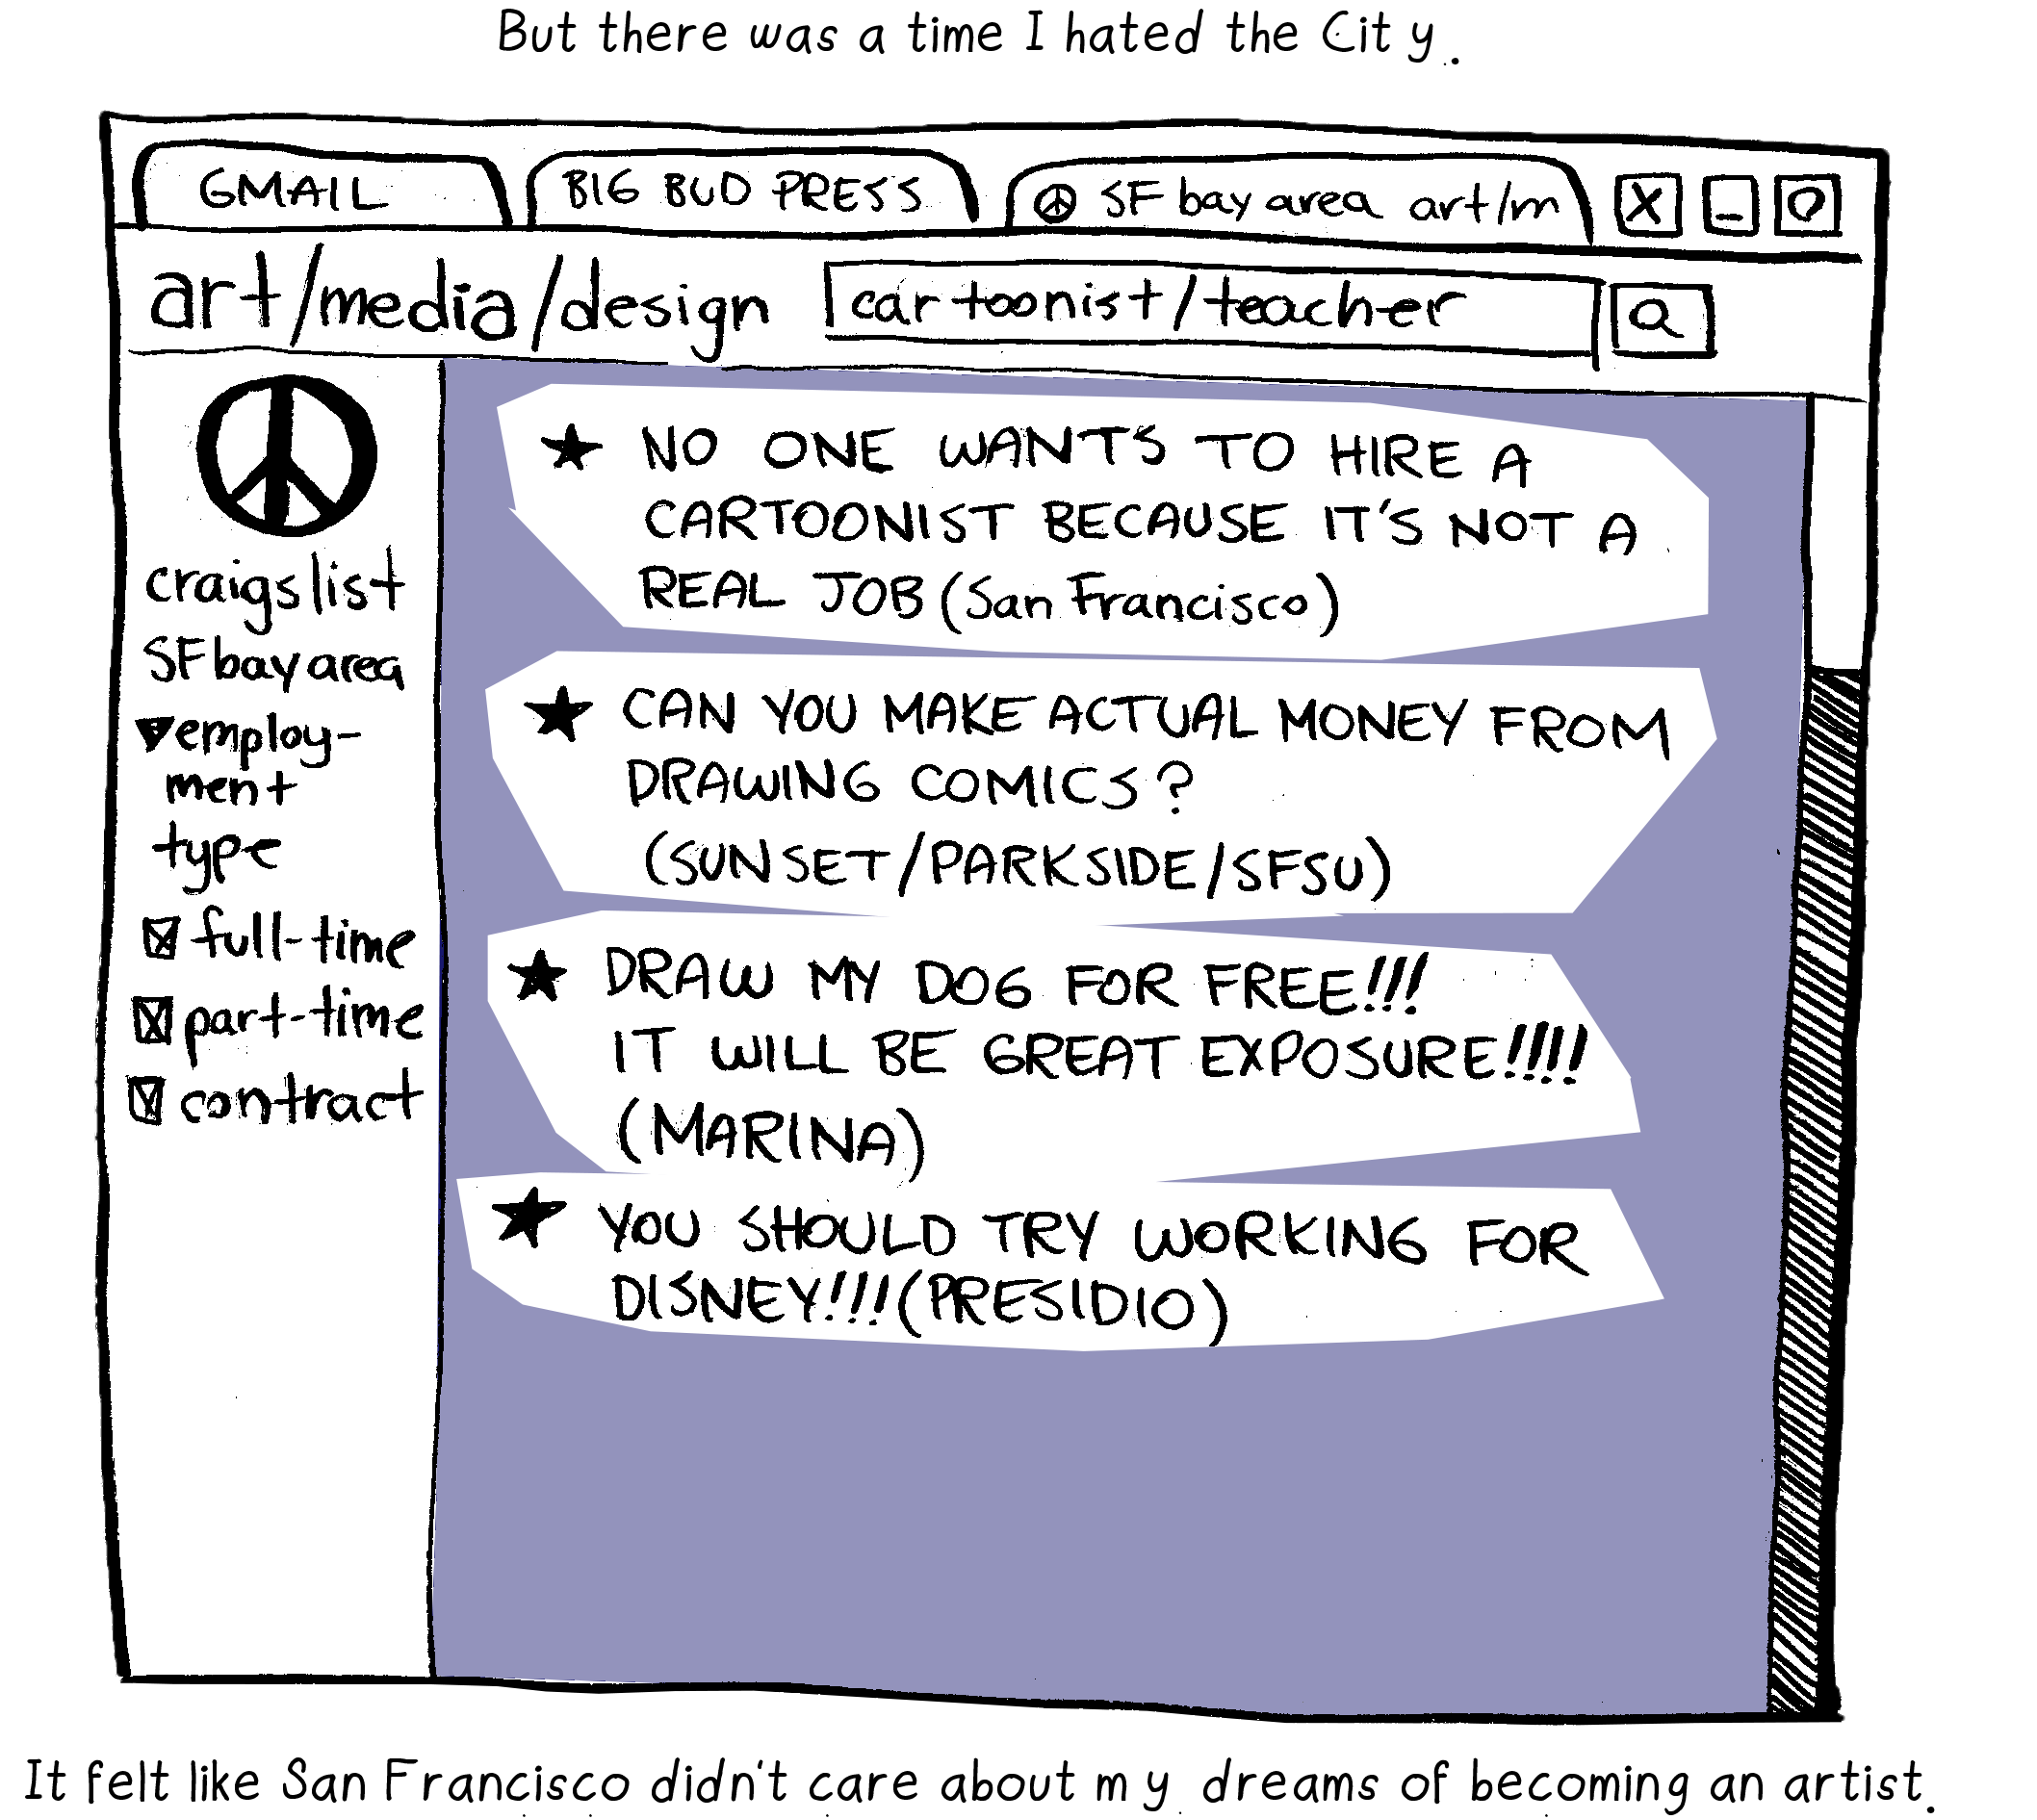 But there was a time I hated the City.
GMAIL
BIG BUD PRESS
SF bay area art/m
X
art/media/design
cartoonist/teacher
craigslist
SF bay area
employ-
ment
type
full-time
part-time
contract
★ NO ONE WANTS TO HIRE A
CARTOONIST BECAUSE IT'S NOT A
REAL JOB (San Francisco)
★ CAN YOU MAKE ACTUAL MONEY FROM
DRAWING COMICS?
(SUNSET/PARKSIDE/SFSU)
★ DRAW MY DOG FOR FREE!!!
IT WILL BE GREAT EXPOSURE!!!!
(MARINA)
★ YOU SHOULD TRY WORKING FOR
DISNEY!!! (PRESIDIO)
It felt like San Francisco didn't care about my dreams of becoming an artist.